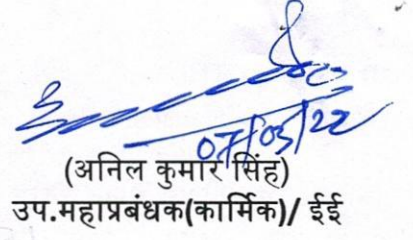 07/03/22
(अनिल कुमार सिंह)
उप.महाप्रबंधक(कार्मिक)/ ईई